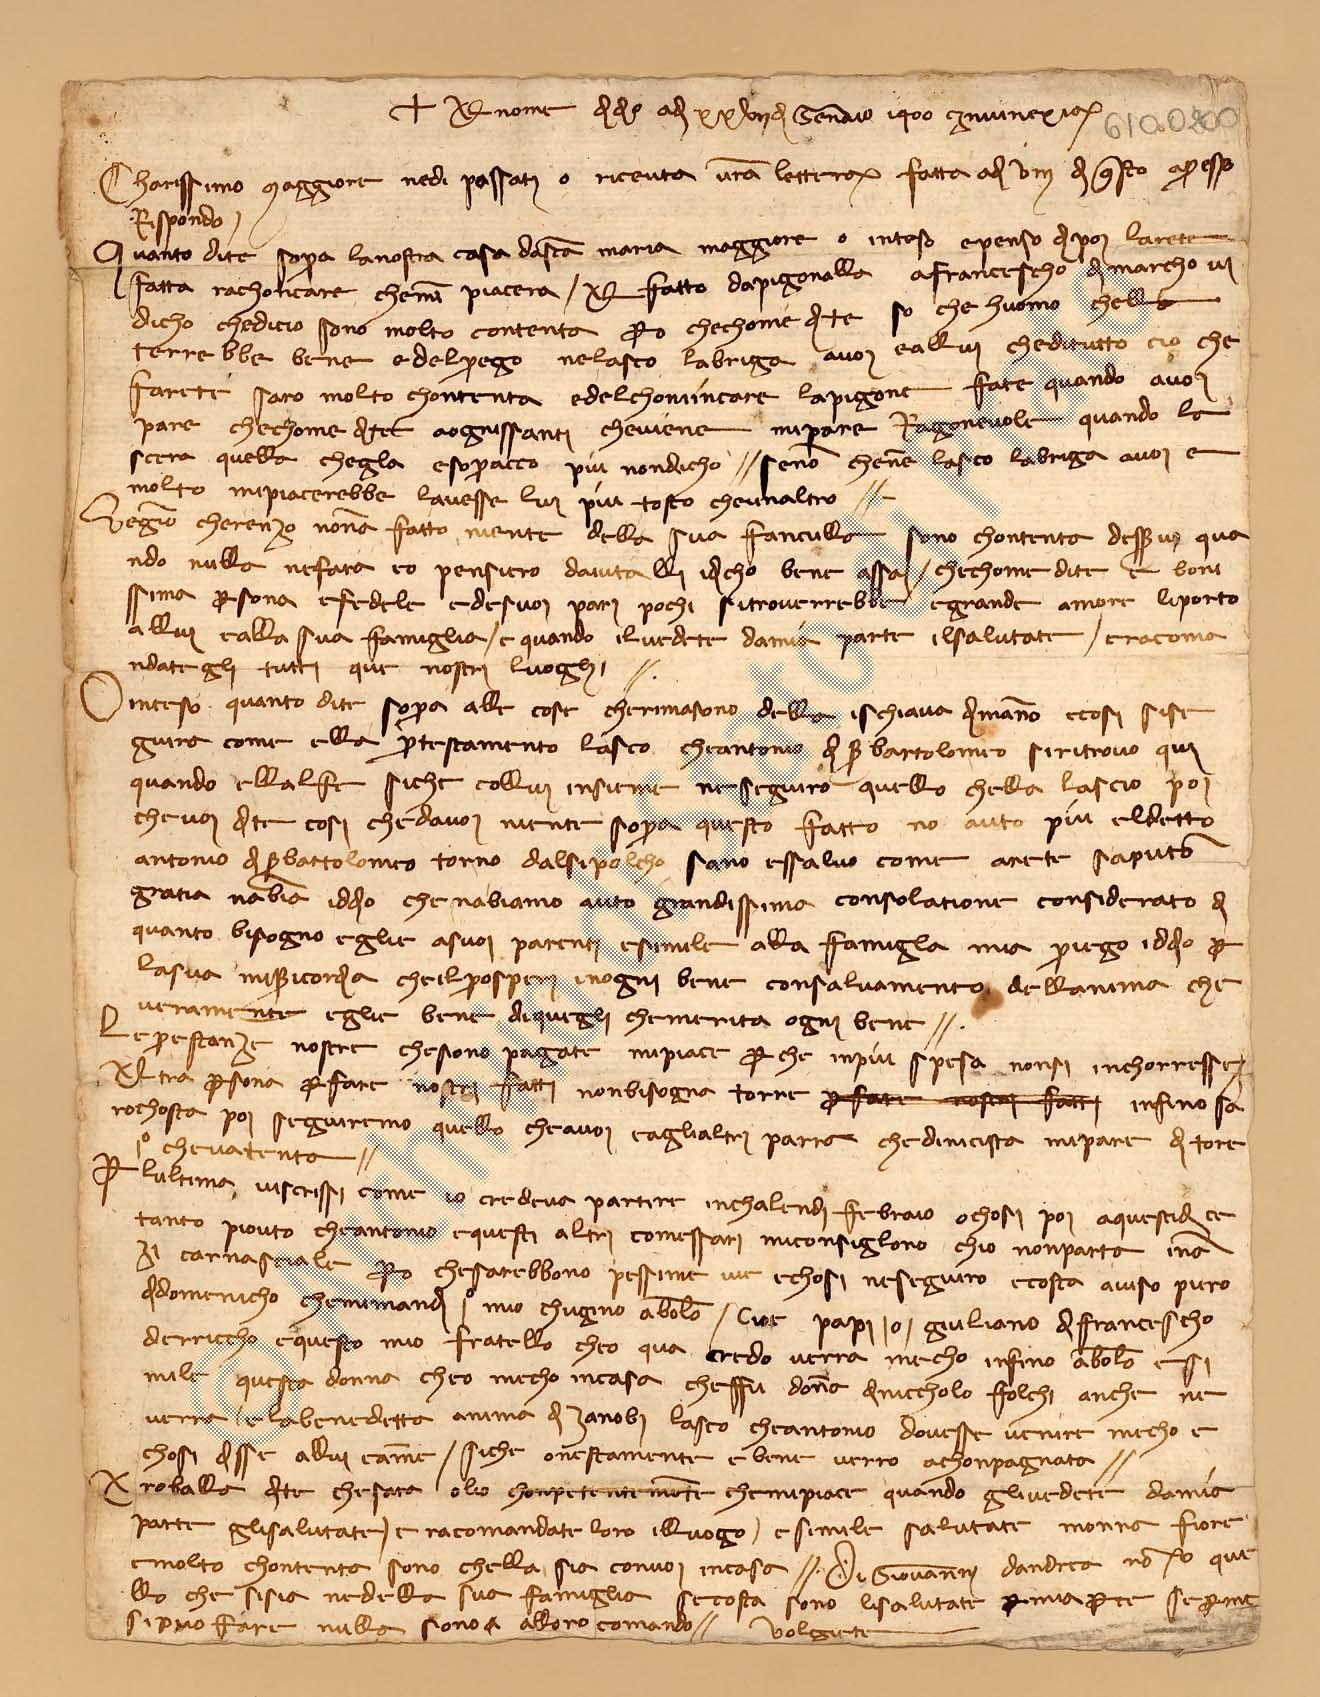 nome
610.0200
Charissimo maggiore nedi passati o ricevuta vostra lettera fatta adi viii di questo apresso
Rispondo
Quanto dite sopra lanostra casa dascta maria maggiore o inteso epenso dipoi larete
fatta rachonciare chemi piacera / fatto dapigonalla afrancescho dimarcho vi
dicho chedicio sono molto contenta pero chechome dite so che huomo chella
terrebbe bene edelpego nelasco labriga avoi eallui cheditutto cio che
farete saro molto chontenta edelchominciare lapigone fate quando avoi
pare chechome dite aognissanti cheviene mipare Ragonevole quando la
scera quella chegla esopraccio piu nondicho // seno chene lasco labriga avoi e
molto mipiacerebbe lavesse lui piu tosto cheunaltro //
Vegio cherenzo nona fatto niente della sua fanculla sono chontenta desservi qua
ndo nulla nefara eo pensiero daiutalli dicho bene assai / chechome dite e boni
ssima persona efedele edesuoi pari pochi sitroverrebbe egrande amore liporto
allui ealla sua famiglia / e quando ilvedete damia parte ilsalutate / eracoma
ndategli tutti que nostri luoghi //
O inteso quanto dite sopra alle cose cherimasono della ischiava dimano ecosi sise
guira come ella pertestamento lasco cheantonio di ser bartolomeo siritrovo qui
quando ellalfe siche collui insieme neseguiro quello chella lascio poi
chevoi dite cosi chedavoi niente sopra questo fatto no auto piu eldetto
antonio di ser bartolomeo torno dalsipolcho sano essalvo come arete saputo
gratia nabia iddio che nabiamo auto grandissima consolatione considerato di
quanto bisogno eglie asuoi parenti esimile alla famigla mia priego iddio per
lasua misericordia cheilprosperi inogni bene consalvamento dellanima che
veramente eglie bene diquegli chemerita ogni bene //
Le prestanze nostre chesono pagate mipiace perche inpiu spesa nonsi inchorresse
tra persona perfare nostri fatti nonbisogna torre per fare nostri fatti infino sa
rochosta poi seguiremo quello cheavoi eaglialtri parra chedinicista mipare di tore
1º chevatenta //
Per lultima viscrissi come io credeva partire inchalendi febraio ochosi poi aquestidi ce
tanto piovuto cheantonio equesti altri comessari miconsigliono chio nonparta ina
zi carnasciale pero chesarebbono pessime vie echosi neseguiro ecosta aviso piero
didomenicho chemimandi 1º mio chugino abolo / Cioe papi / o / giuliano difrancescho
derriccho equesto mio fratello cheo qua credo verra mecho infino abolo essi
mile questa donna cheo mecho incasa cheffu dona dinicholo folchi anche ne
verra / e labenedetta anima di zanobi lasco cheantonio dovesse venire mecho e
chosi disse allui eame / siche onestamente ebene verro achonpagnata //
roballa dite chesara olio chonpetentemente chemipiace quando glivedete damia
parte glisalutate / e racomandate loro illuogo / e simile salutate monna fiore
emolto chontenta sono chella sia convoi incasa // Di Giovanni dandrea no so que
llo che sisia nedella sua famiglia secosta sono lisalutate per mia parte se per me
sipuo fare nulla sono alloro comando // volgiete